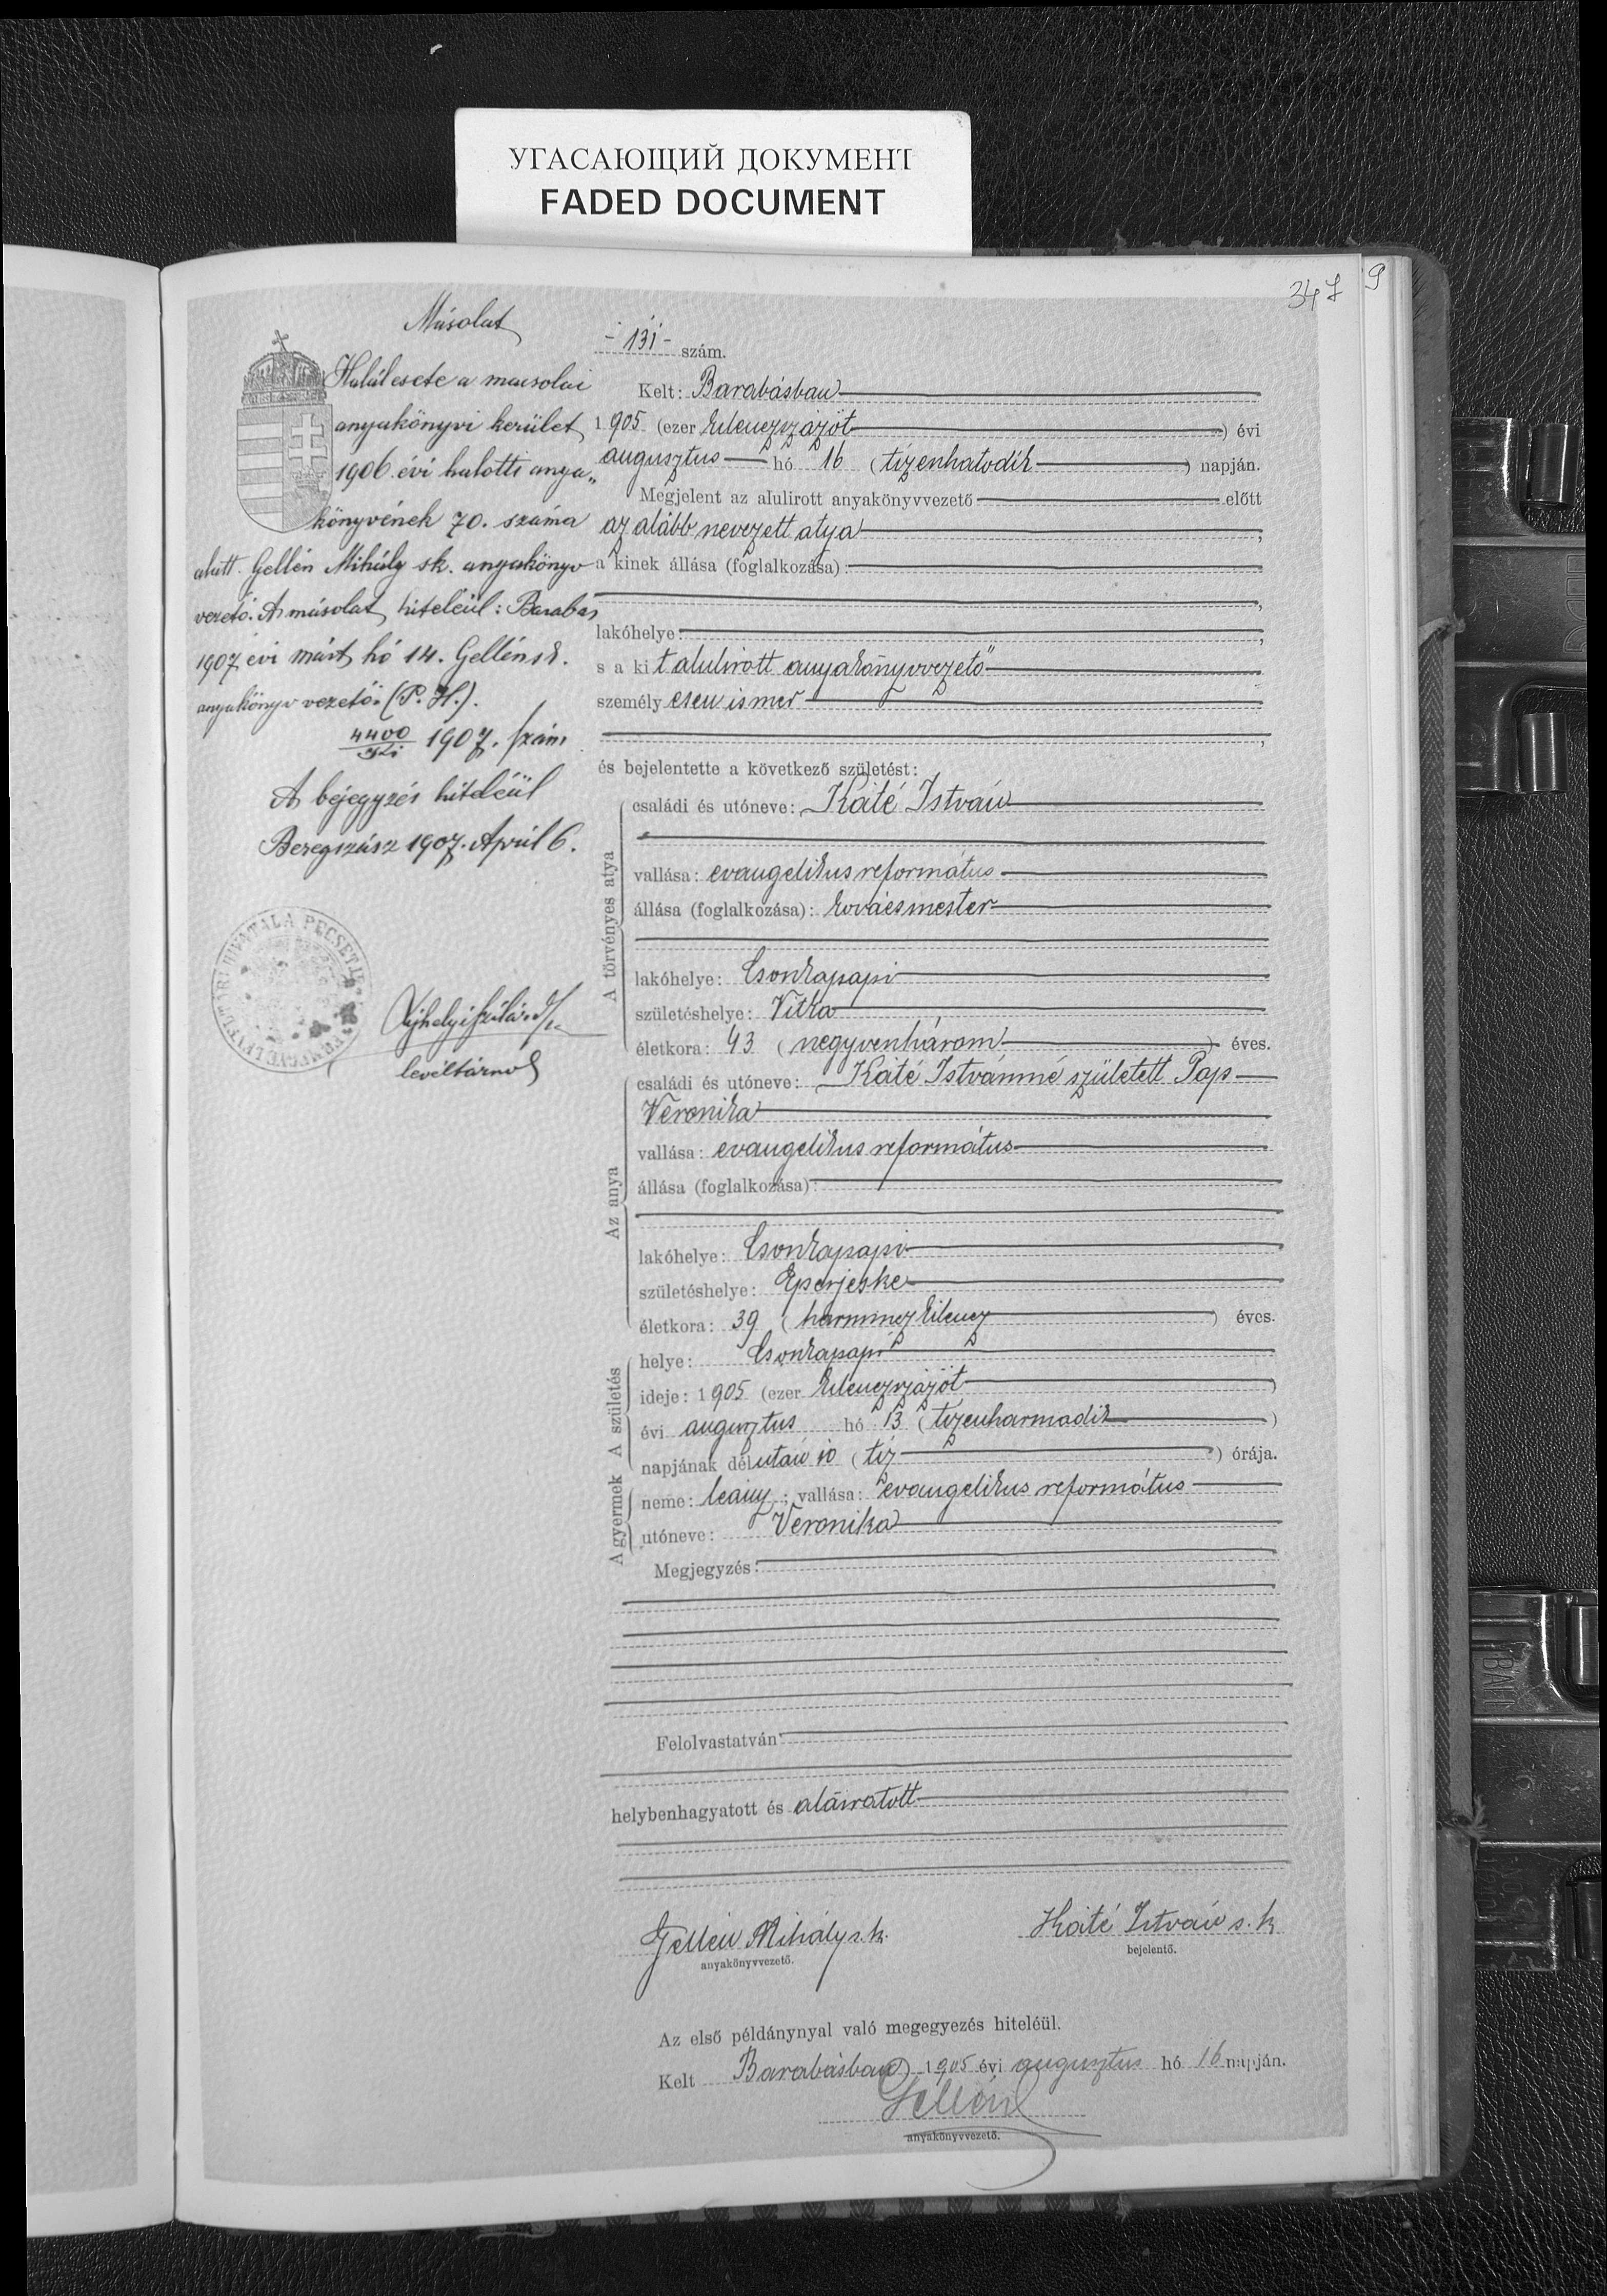 УГАСАЮЩИЙ ДОКУМЕНТ
FADED DOCUMENT
347
9
Másolat
Halálesete a macsolai
anyakönyvi kerület
1906. évi halotti anya„
könyvének 70. száma
alatt. Gellén Mihály sk. anyakönyv
vezető. A másolat hiteléül: Barabás
1907 évi márt hó 14. Gellén sk.
anyakönyv vezető. (P. H.).
4400 1907. szám
A bejegyzés hiteléül
Beregszász 1907. April 6.
HIVATALA PECSETJE
levéltárnok
- 131 - szám.
Kelt: Barabásban
1905 (ezer kilenczszázöt ) évi
augusztus hó 16 (tizenhatodik ) napján.
Megjelent az alulirott anyakönyvvezető előtt
az alább nevezett atya ,
a kinek állása (foglalkozása):
,
lakóhelye: ,
s a kit alulirott anyakönyvvezető
személyesen ismer
,
és bejelentette a következő születést:
A törvényes atya
családi és utóneve: Káté István
vallása: evangelikus református
állása (foglalkozása): kovácsmester
lakóhelye: Csonkapapi
születéshelye: Vitka
életkora: 43 (negyvenhárom ) éves.
Az anya
családi és utóneve: Káté Istvánné született Pap
Veronika
vallása: evangelikus református
állása (foglalkozása):
lakóhelye: Csonkapapi
születéshelye: Eperjeske
életkora: 39 (harminczkilencz ) éves.
A születés
helye: Csonkapapi
ideje: 1905 (ezer kilenczszázöt )
évi augusztus hó 13 (tizenharmadik )
napjának délután 10 (tíz ) órája.
A gyermek
neme: leány; vallása: evangelikus református
utóneve: Veronika
Megjegyzés:
Felolvastatván
helybenhagyatott és aláiratott
Gellén Mihály s.k. Káté István s. k.
anyakönyvvezető. bejelentő.
Az első példánynyal való megegyezés hiteléül.
Kelt Barabásban 1905 évi augusztus hó 16 napján.
Gellén
anyakönyvvezető.